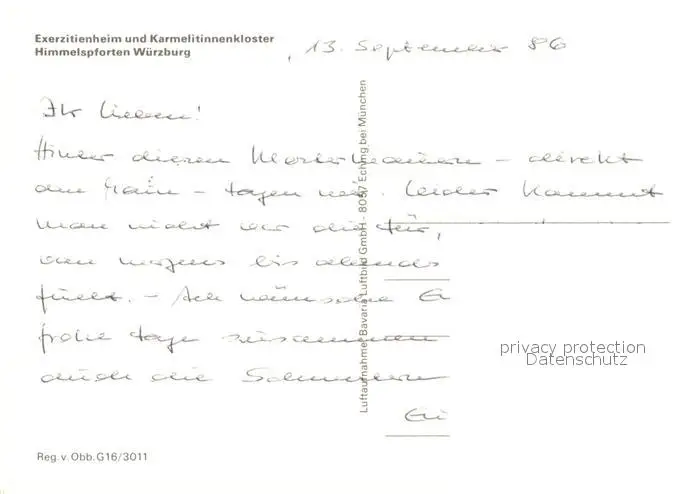 Exerzitienheim und Karmelitinnenkloster
Himmelspforten Würzburg
, 13. September 86
Ihr Lieben!
Hinter diesen Klostermauern – direkt
am Main – tagen wir. Leider kommt
man nicht vor die Tür,
von morgens bis abends
füllt. – Ich wünsche
frohe Tage zusammen
auch die
Luftaufnahme: Bavaria Luftbild GmbH - 8057 Eching bei München
privacy protection
Datenschutz
Reg. v. Obb. G16/3011